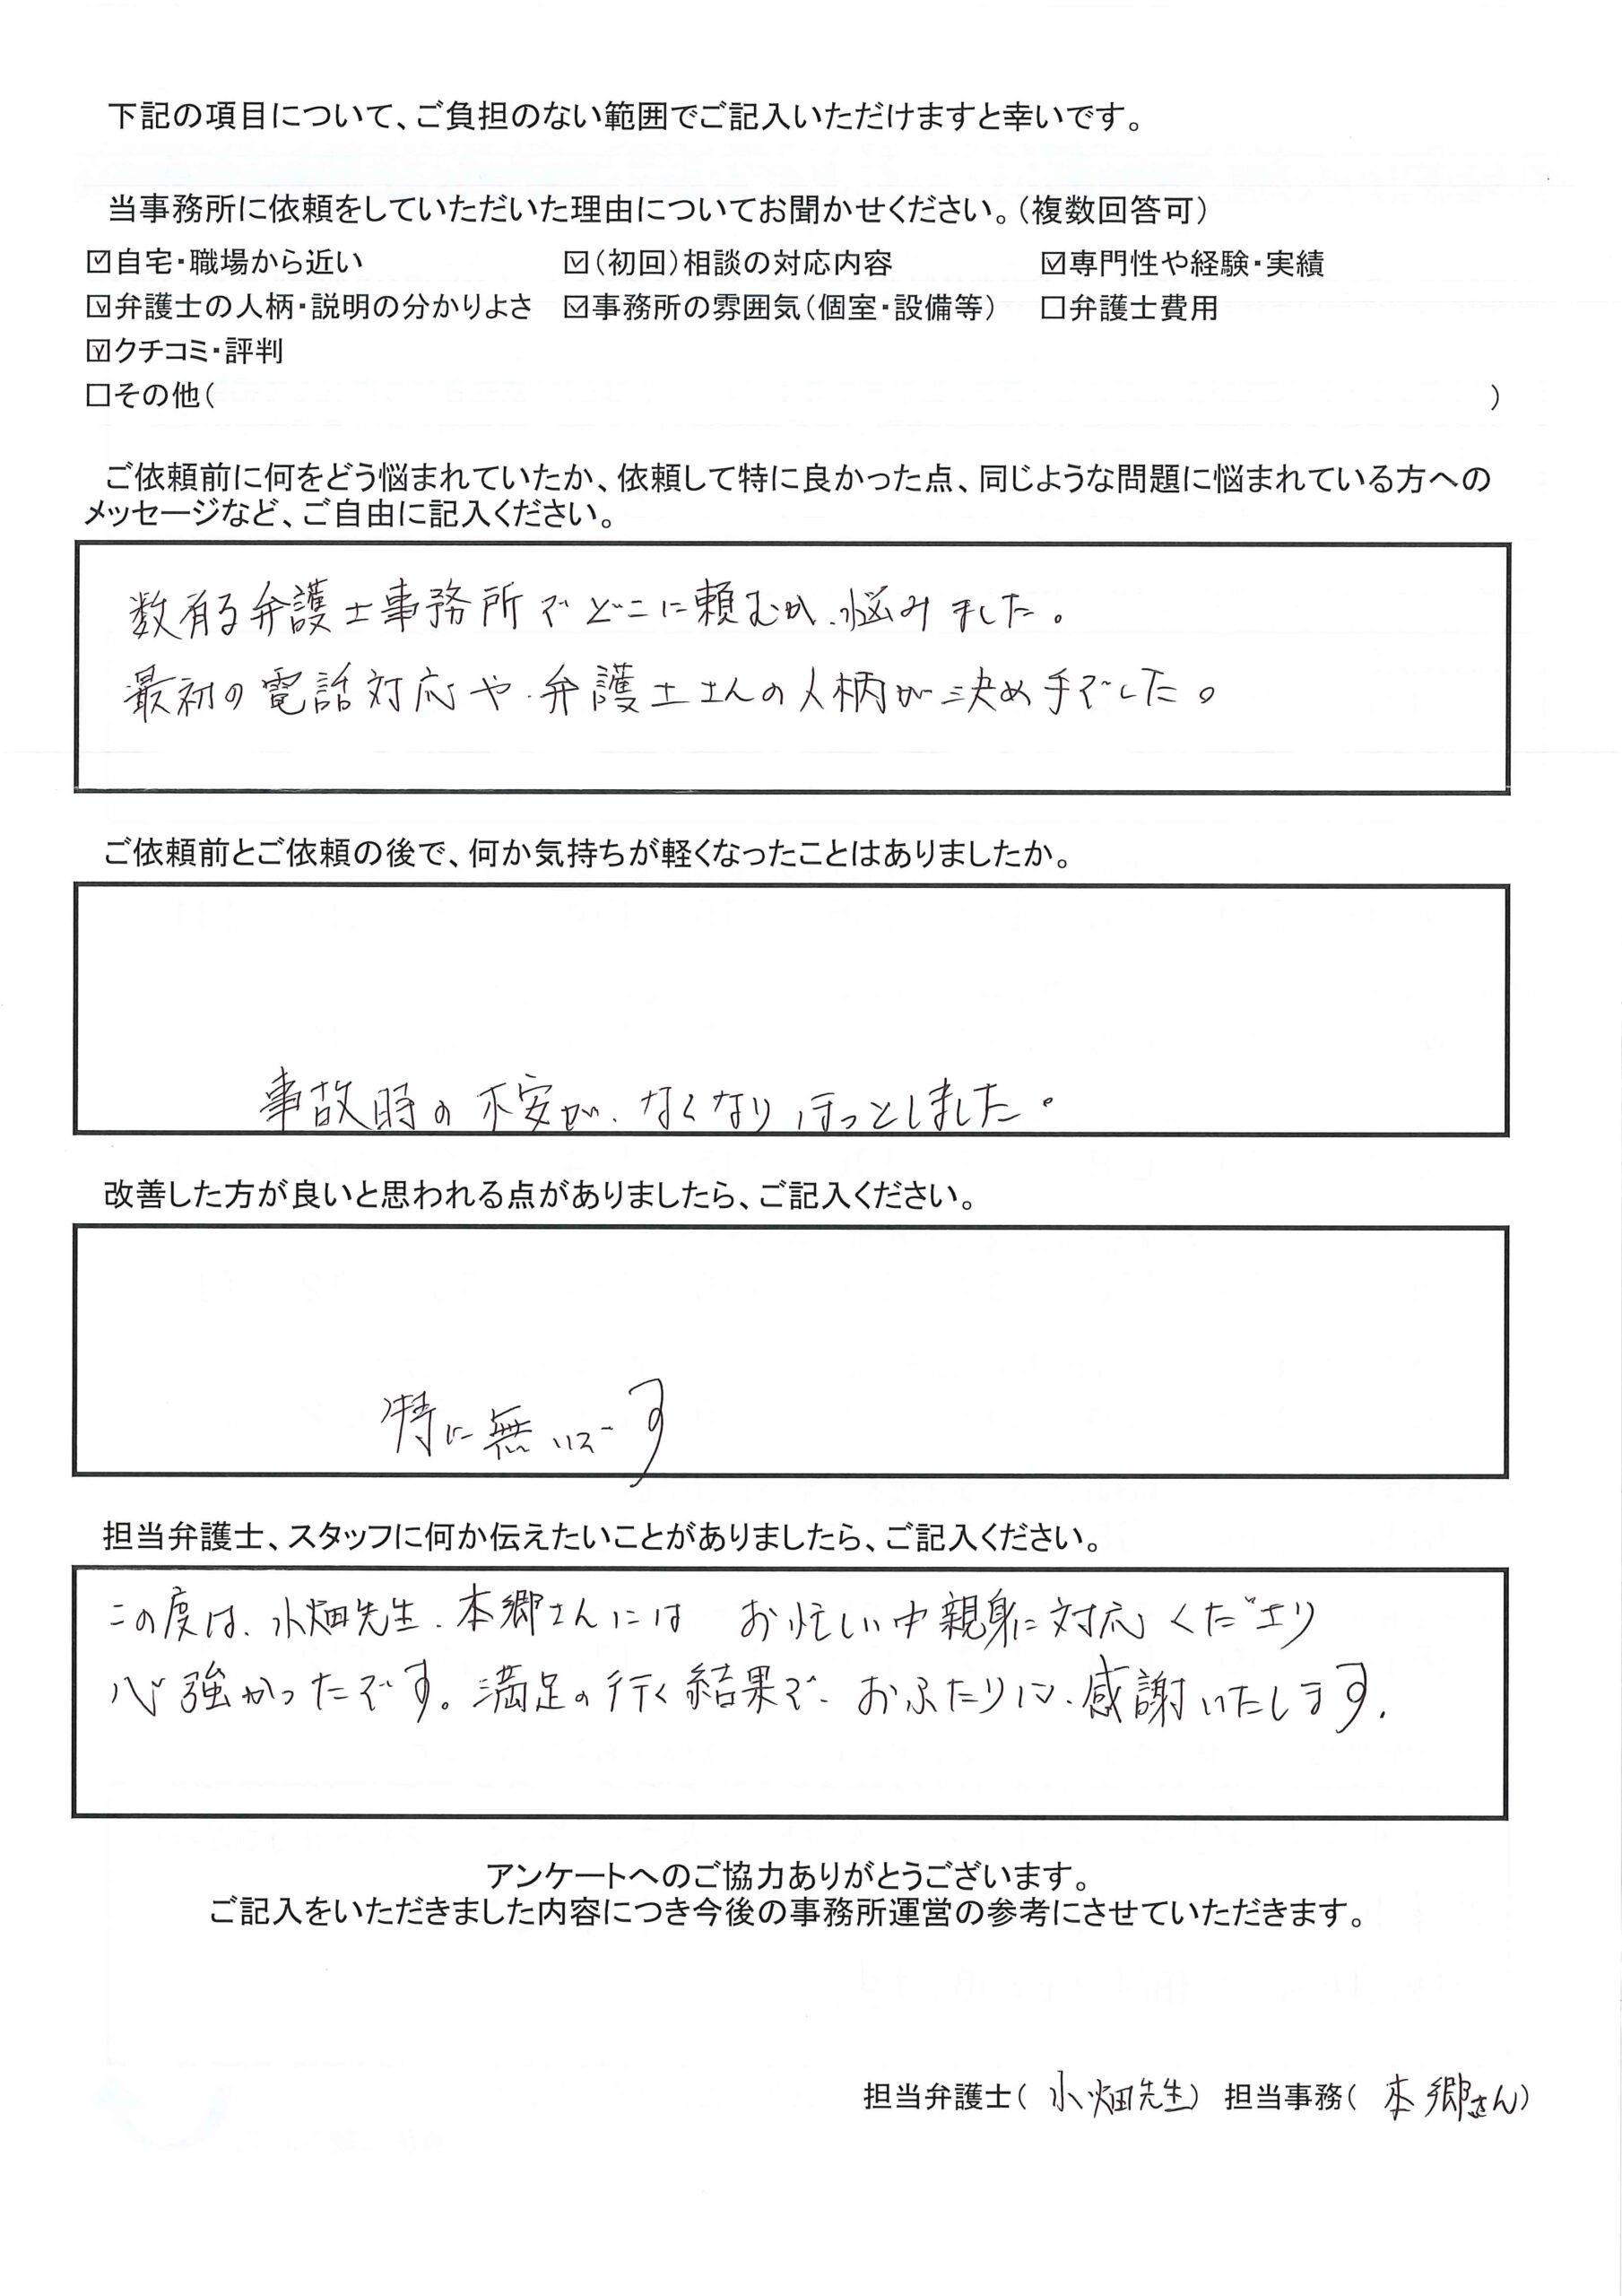 下記の項目について、ご負担のない範囲でご記入いただけますと幸いです。
当事務所に依頼をしていただいた理由についてお聞かせください。（複数回答可）
☑自宅・職場から近い ☑（初回）相談の対応内容 ☑専門性や経験・実績
☑弁護士の人柄・説明の分かりよさ ☑事務所の雰囲気（個室・設備等） □弁護士費用
☑クチコミ・評判
□その他（ ）
ご依頼前に何をどう悩まれていたか、依頼して特に良かった点、同じような問題に悩まれている方への
メッセージなど、ご自由に記入ください。
数有る弁護士事務所でどこに頼むか、悩みました。
最初の電話対応や、弁護士さんの人柄が決め手でした。
ご依頼前とご依頼の後で、何か気持ちが軽くなったことはありましたか。
事故時の不安が、なくなりほっとしました。
改善した方が良いと思われる点がありましたら、ご記入ください。
特に無いです
担当弁護士、スタッフに何か伝えたいことがありましたら、ご記入ください。
この度は、小畑先生、本郷さんには お忙しい中親身に対応くださり
心強かったです。満足の行く結果で、おふたりに、感謝いたします.
アンケートへのご協力ありがとうございます。
ご記入をいただきました内容につき今後の事務所運営の参考にさせていただきます。
担当弁護士（小畑先生）担当事務（本郷さん）